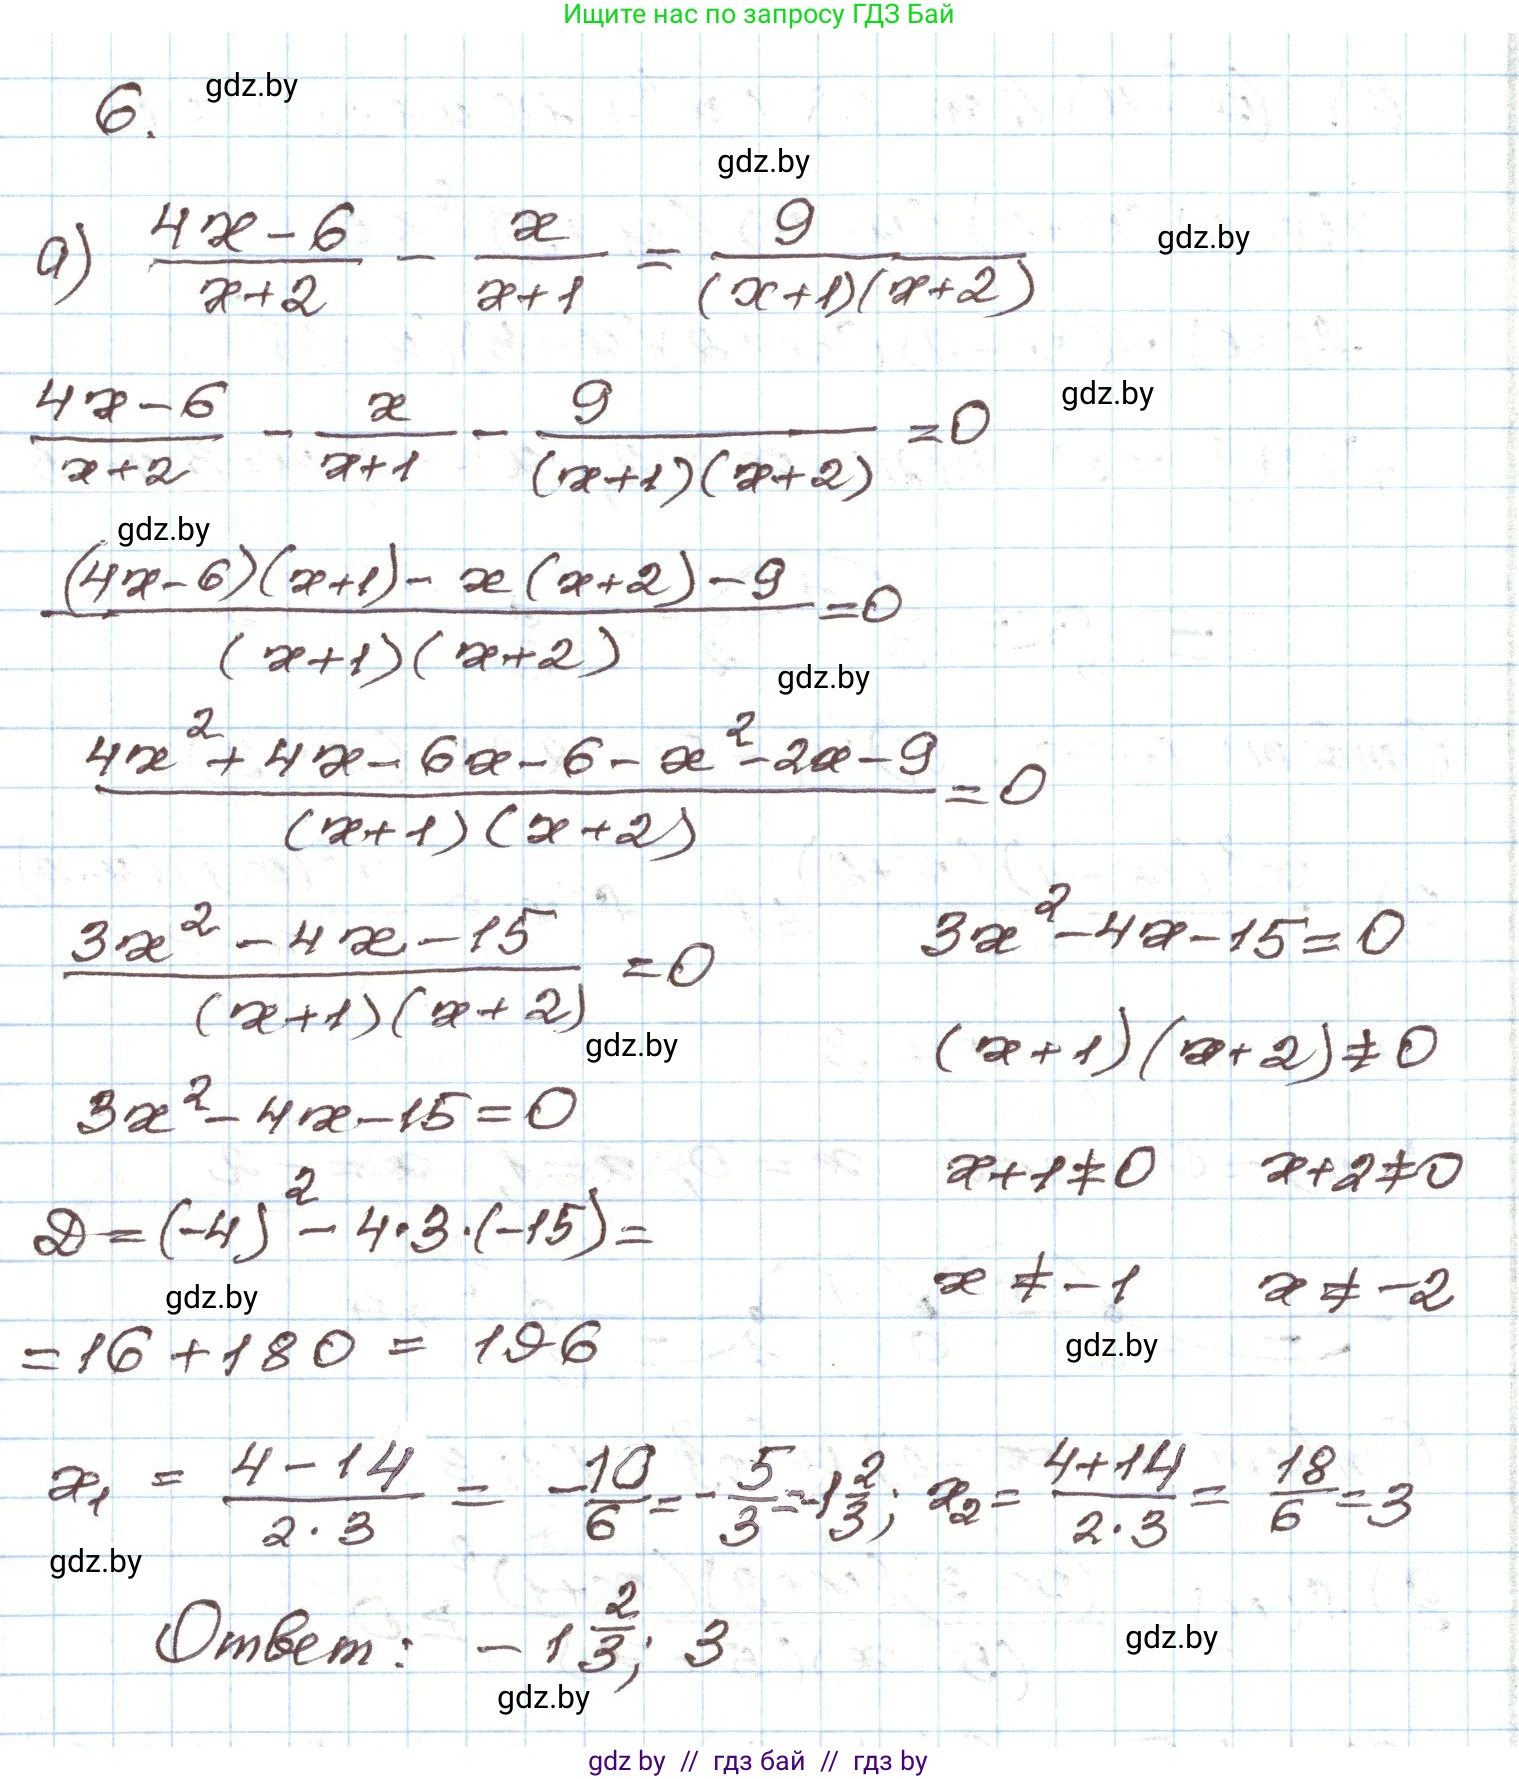 Ищите нас по запросу ГДЗ Бай
6.
gdz.by
gdz.by
а) (4x-6)/(x+2) - x/(x+1) = 9/((x+1)(x+2))
gdz.by
(4x-6)/(x+2) - x/(x+1) - 9/((x+1)(x+2)) =0
gdz.by
gdz.by
((4x-6)(x+1)- x(x+2)-9)/((x+1)(x+2)) =0
gdz.by
(4x²+4x-6x-6-x²-2x-9)/((x+1)(x+2)) =0
(3x²-4x-15)/((x+1)(x+2)) =0
gdz.by
3x²-4x-15=0
D=(-4)²-4·3·(-15)=
gdz.by
=16+180= 196
3x²-4x-15=0
(x+1)(x+2)≠0
x+1≠0 x+2≠0
x≠-1 x≠-2
gdz.by
x₁ = (4-14)/(2·3) = -10/6=-5/3=-1 2/3; x₂=(4+14)/(2·3)= 18/6=3
gdz.by
Ответ: -1 2/3; 3
gdz.by
gdz.by
gdz by // гдз бай // гдз by